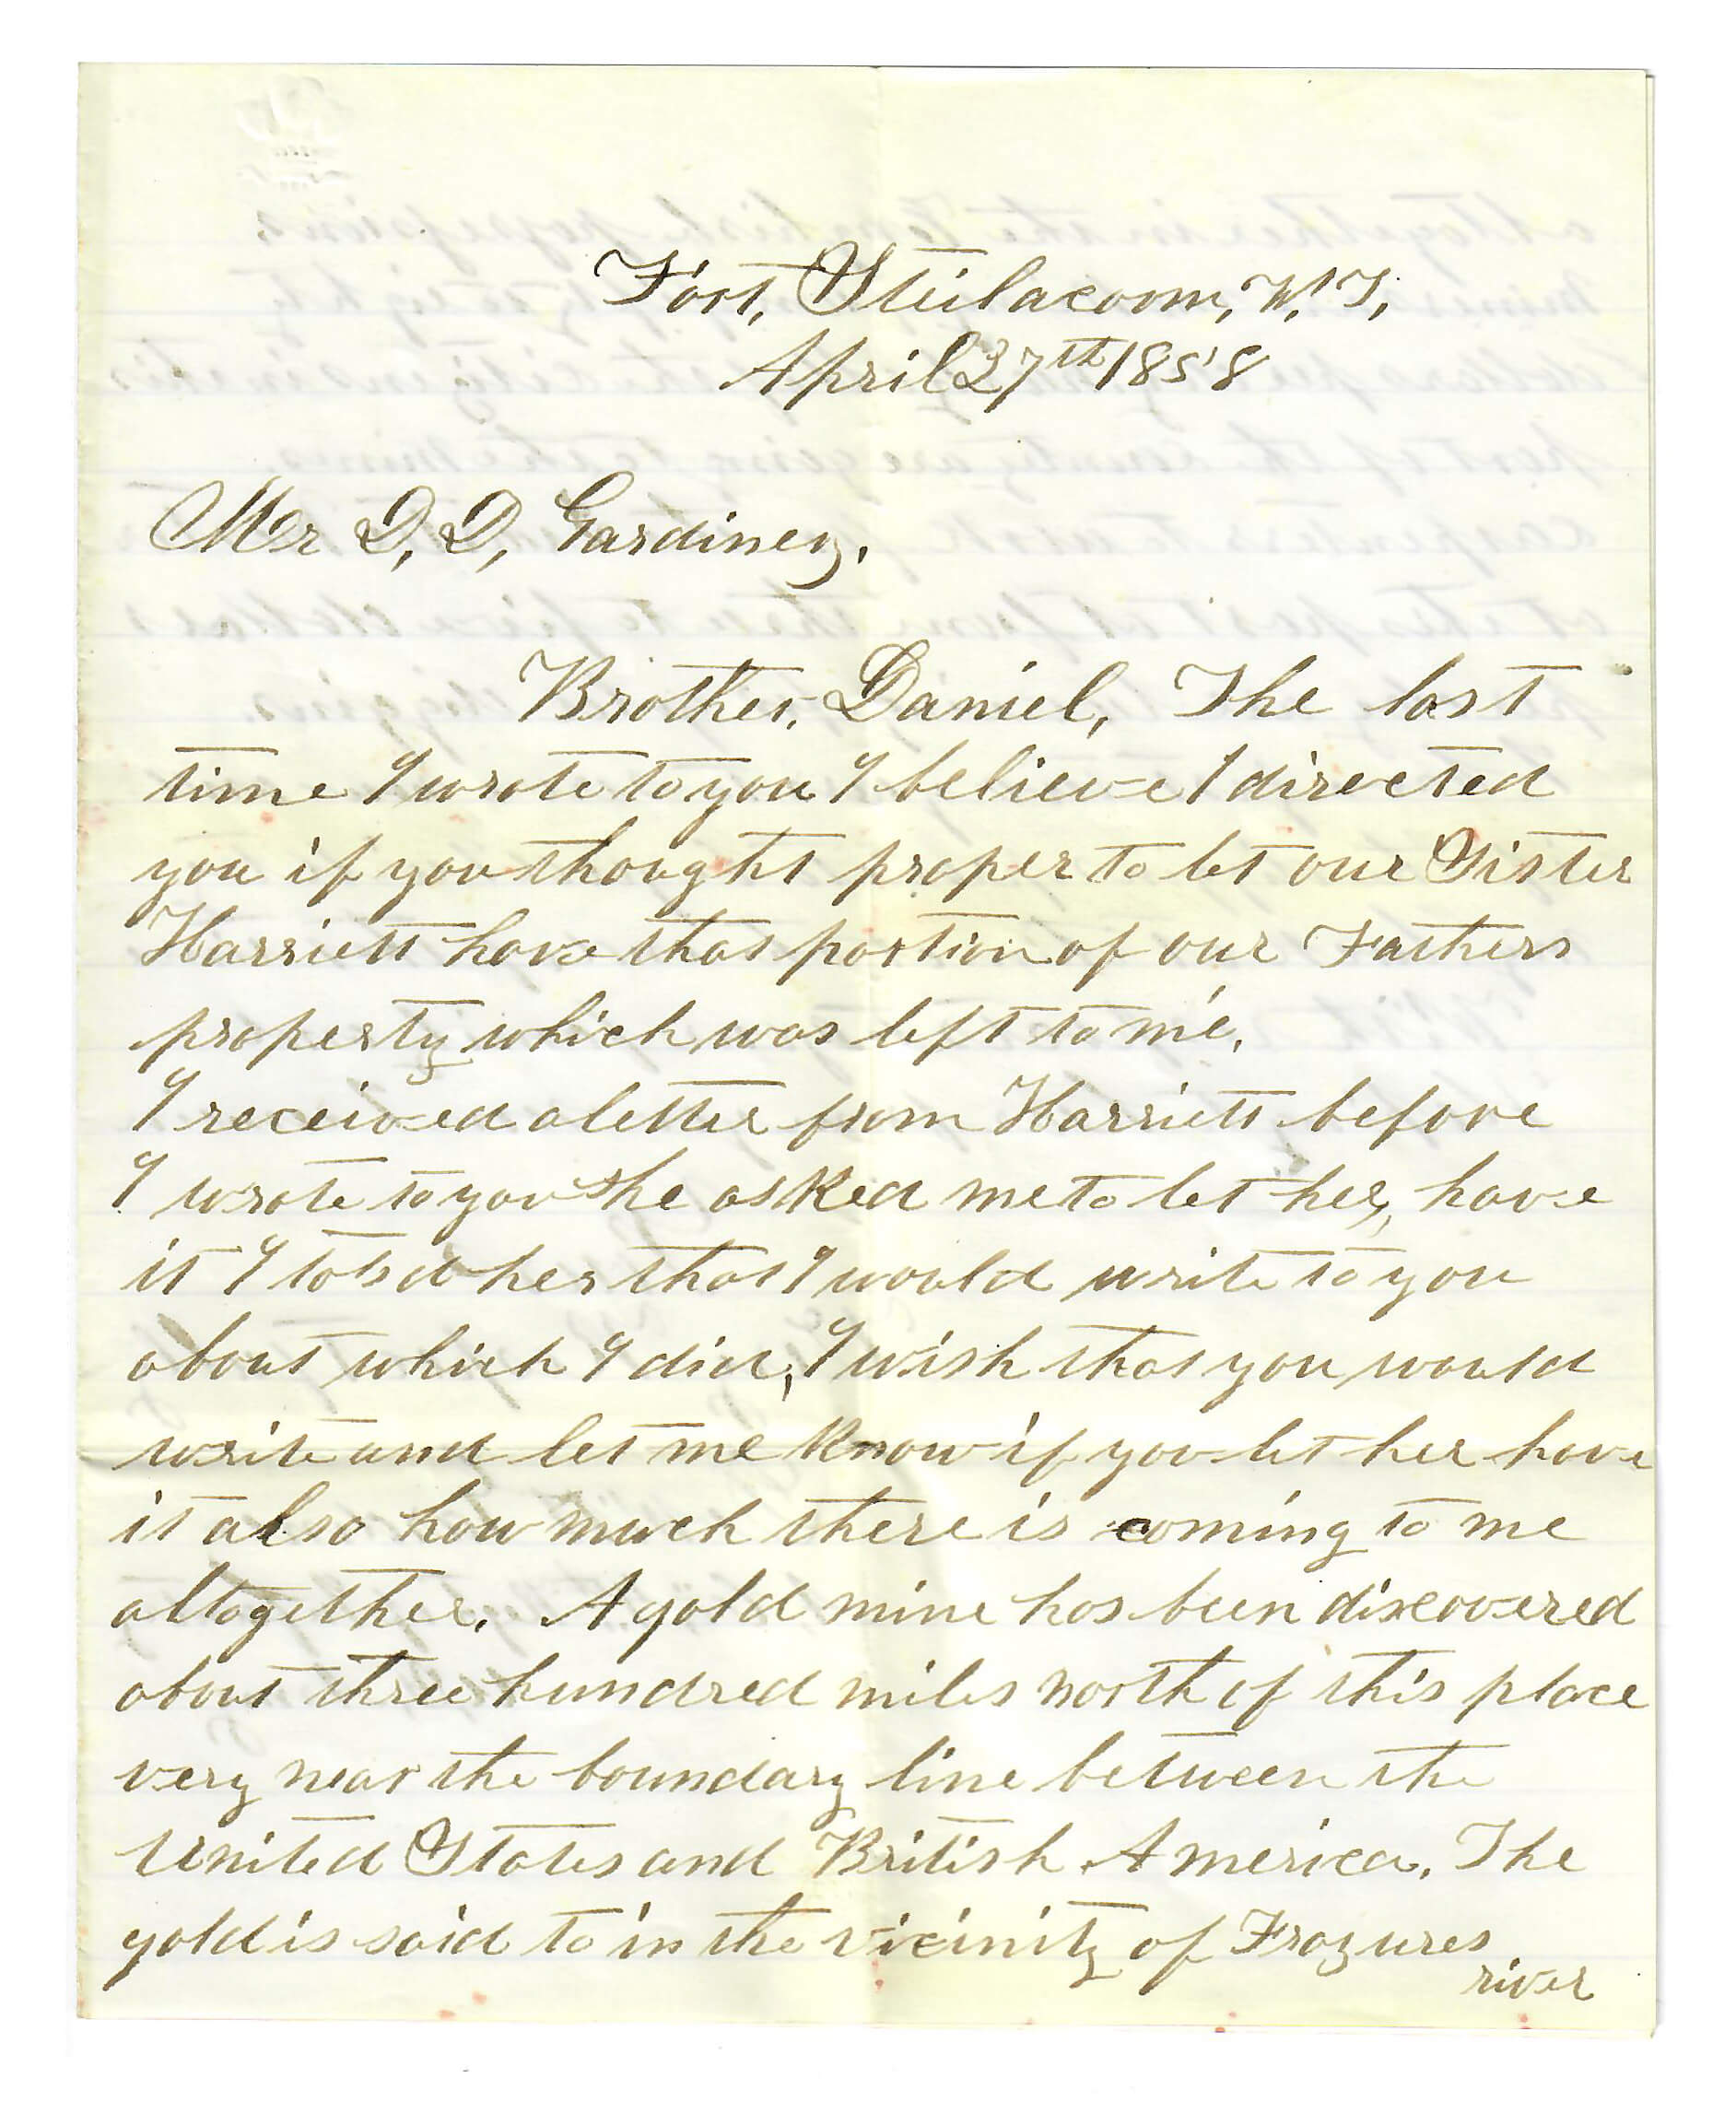 Fort, Steilacoom, W.T,
April 27th 1858
Mer D, D, Gardiner.
Brother, Daniel, The last
time I wrote to you I believe I directed
you if you thought proper to let our Sister
Harriett have that portion of our Fathers
property which was left to me.
I received a letter from Harriett before
I wrote to you she asked me to let her, have
it I told her that I would write to you
about which I did, I wish that you would
write and let me know if you let her have
it also how much there is coming to me
altogether. A gold mine has been discovered
about three hundred miles north of this place
very near the boundary line between the
United States and British America. The
gold is said to in the vicinity of Frazures
river